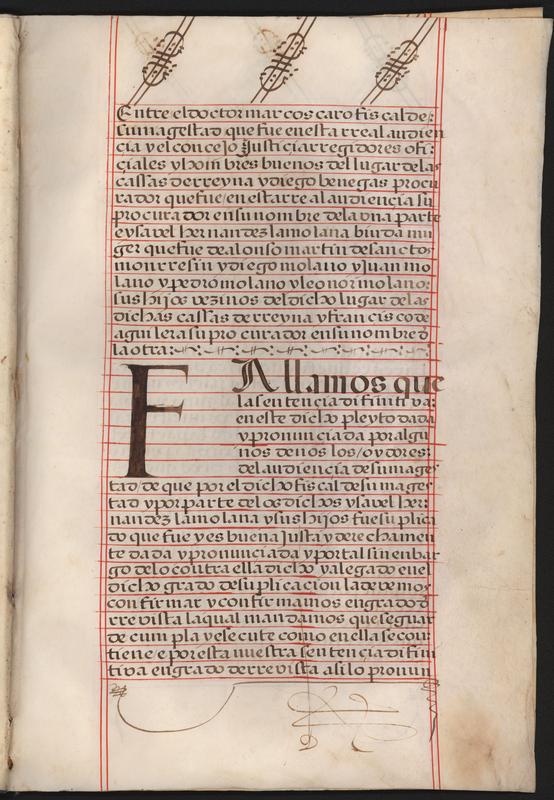 Entre el doctor marcos caro fiscal de
su magestad que fue en esta rreal audien
cia y el concejo Justicia rregidores ofi
ciales y hombres buenos del lugar de las
cassas de rreyna y diego benegas procu
rador que fue en esta rreal audiencia su
procurador en su nombre de la vna parte
e ysavel hernandez la molana biuda mu
ger que fue de alonso martin de sancto
monrresin y diego molano y Juan mo
lano y pedro molano y leonor molano
sus hijos vezinos del dicho lugar de las
dichas cassas de rreyna y francisco de
aguilera su procurador en su nombre d
la otra
FAllamos que
la sentencia difinitiva
en este dicho pleyto dada
y pronunciada por algu
nos de nos los oydores
del audiencia de su mages
tad de que por el dicho fiscal de su mages
tad y por parte de los dichos ysavel her
nandez la molana y sus hijos fue suplica
do que fue y es buena Justa y derechamen
te dada y pronunciada y por tal sin enbar
go de lo contra ella dicho y alegado en el
dicho grado de suplicacion la devemos
confirmar y confirmamos en grado d
rrevista la qual mandamos que se guar
de cumpla y esecute como en ella se con
tiene e por esta nuestra sentencia difini
tiva en grado de rrevista asi lo pronun